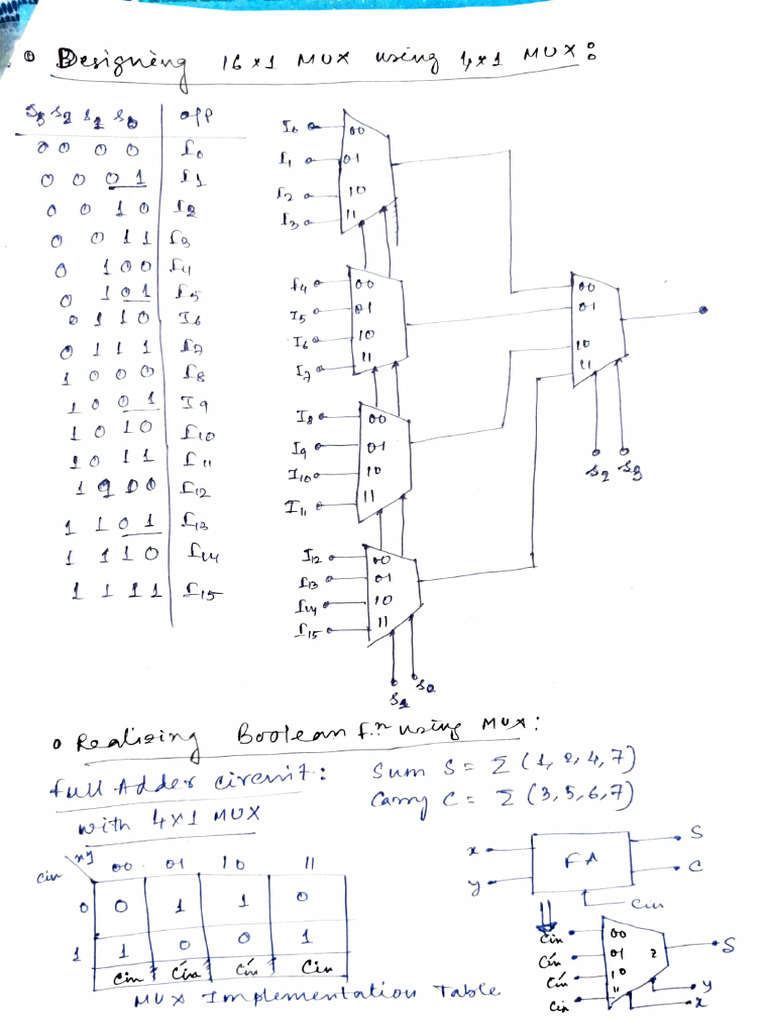 Designing 16x1 MUX using 4x1 MUX:
S3 S2 S1 S0 o/p
0 0 0 0 I0
0 0 0 1 I1
0 0 1 0 I2
0 0 1 1 I3
0 1 0 0 I4
0 1 0 1 I5
0 1 1 0 I6
0 1 1 1 I7
1 0 0 0 I8
1 0 0 1 I9
1 0 1 0 I10
1 0 1 1 I11
1 1 0 0 I12
1 1 0 1 I13
1 1 1 0 I14
1 1 1 1 I15
I0 00
I1 01
I2 10
I3 11
I4 00
I5 01
I6 10
I7 11
I8 00
I9 01
I10 10
I11 11
I12 00
I13 01
I14 10
I15 11
S1 S0
00
01
10
11
S2 S3
Realizing Boolean f.n using MUX:
Full Adder circuit: Sum S = Σ(1, 2, 4, 7)
with 4x1 MUX Carry C = Σ(3, 5, 6, 7)
xy 00 01 10 11
Cin
0 0 1 1 0
1 1 0 0 1
Cin C'in C'in Cin
MUX Implementation Table
x FA S
y C
Cin
Cin 00
C'in 01 2 S
C'in 10
Cin 11 y
x